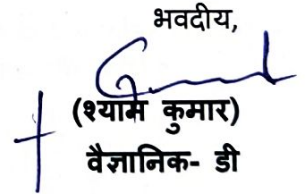 भवदीय,
(श्याम कुमार)
वैज्ञानिक- डी